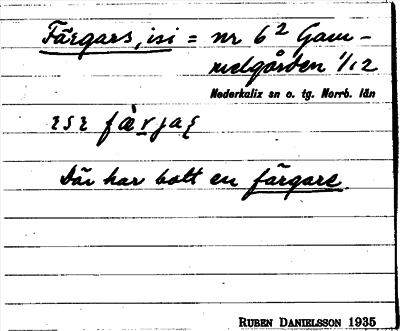 Färgars, isi = nr 6² Gam-
melgården 1/12
Nederkalix sn o. tg. Norrb. län
Där har bott en färgare.
RUBEN DANIELSSON 1935